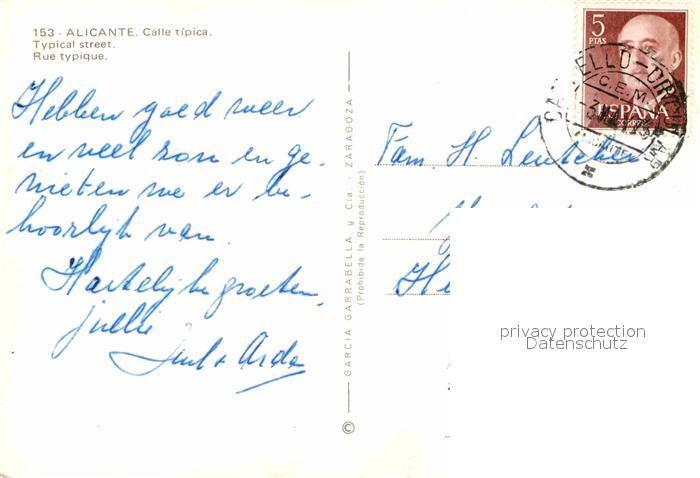 153 - ALICANTE. Calle típica.
Typical street.
Rue typique.
Hebben goed weer
en veel zon en ge-
nieten we er be-
hoorlijk van.
Hartelijke groeten,
jullie
+ Arda
GARCIA GARRABELLA y Cía. - ZARAGOZA
(Prohibida la Reproducción)
©
5
PTAS
ESPAÑA
CORREOS
C.E.M.
Fam. H.
He
privacy protection
Datenschutz